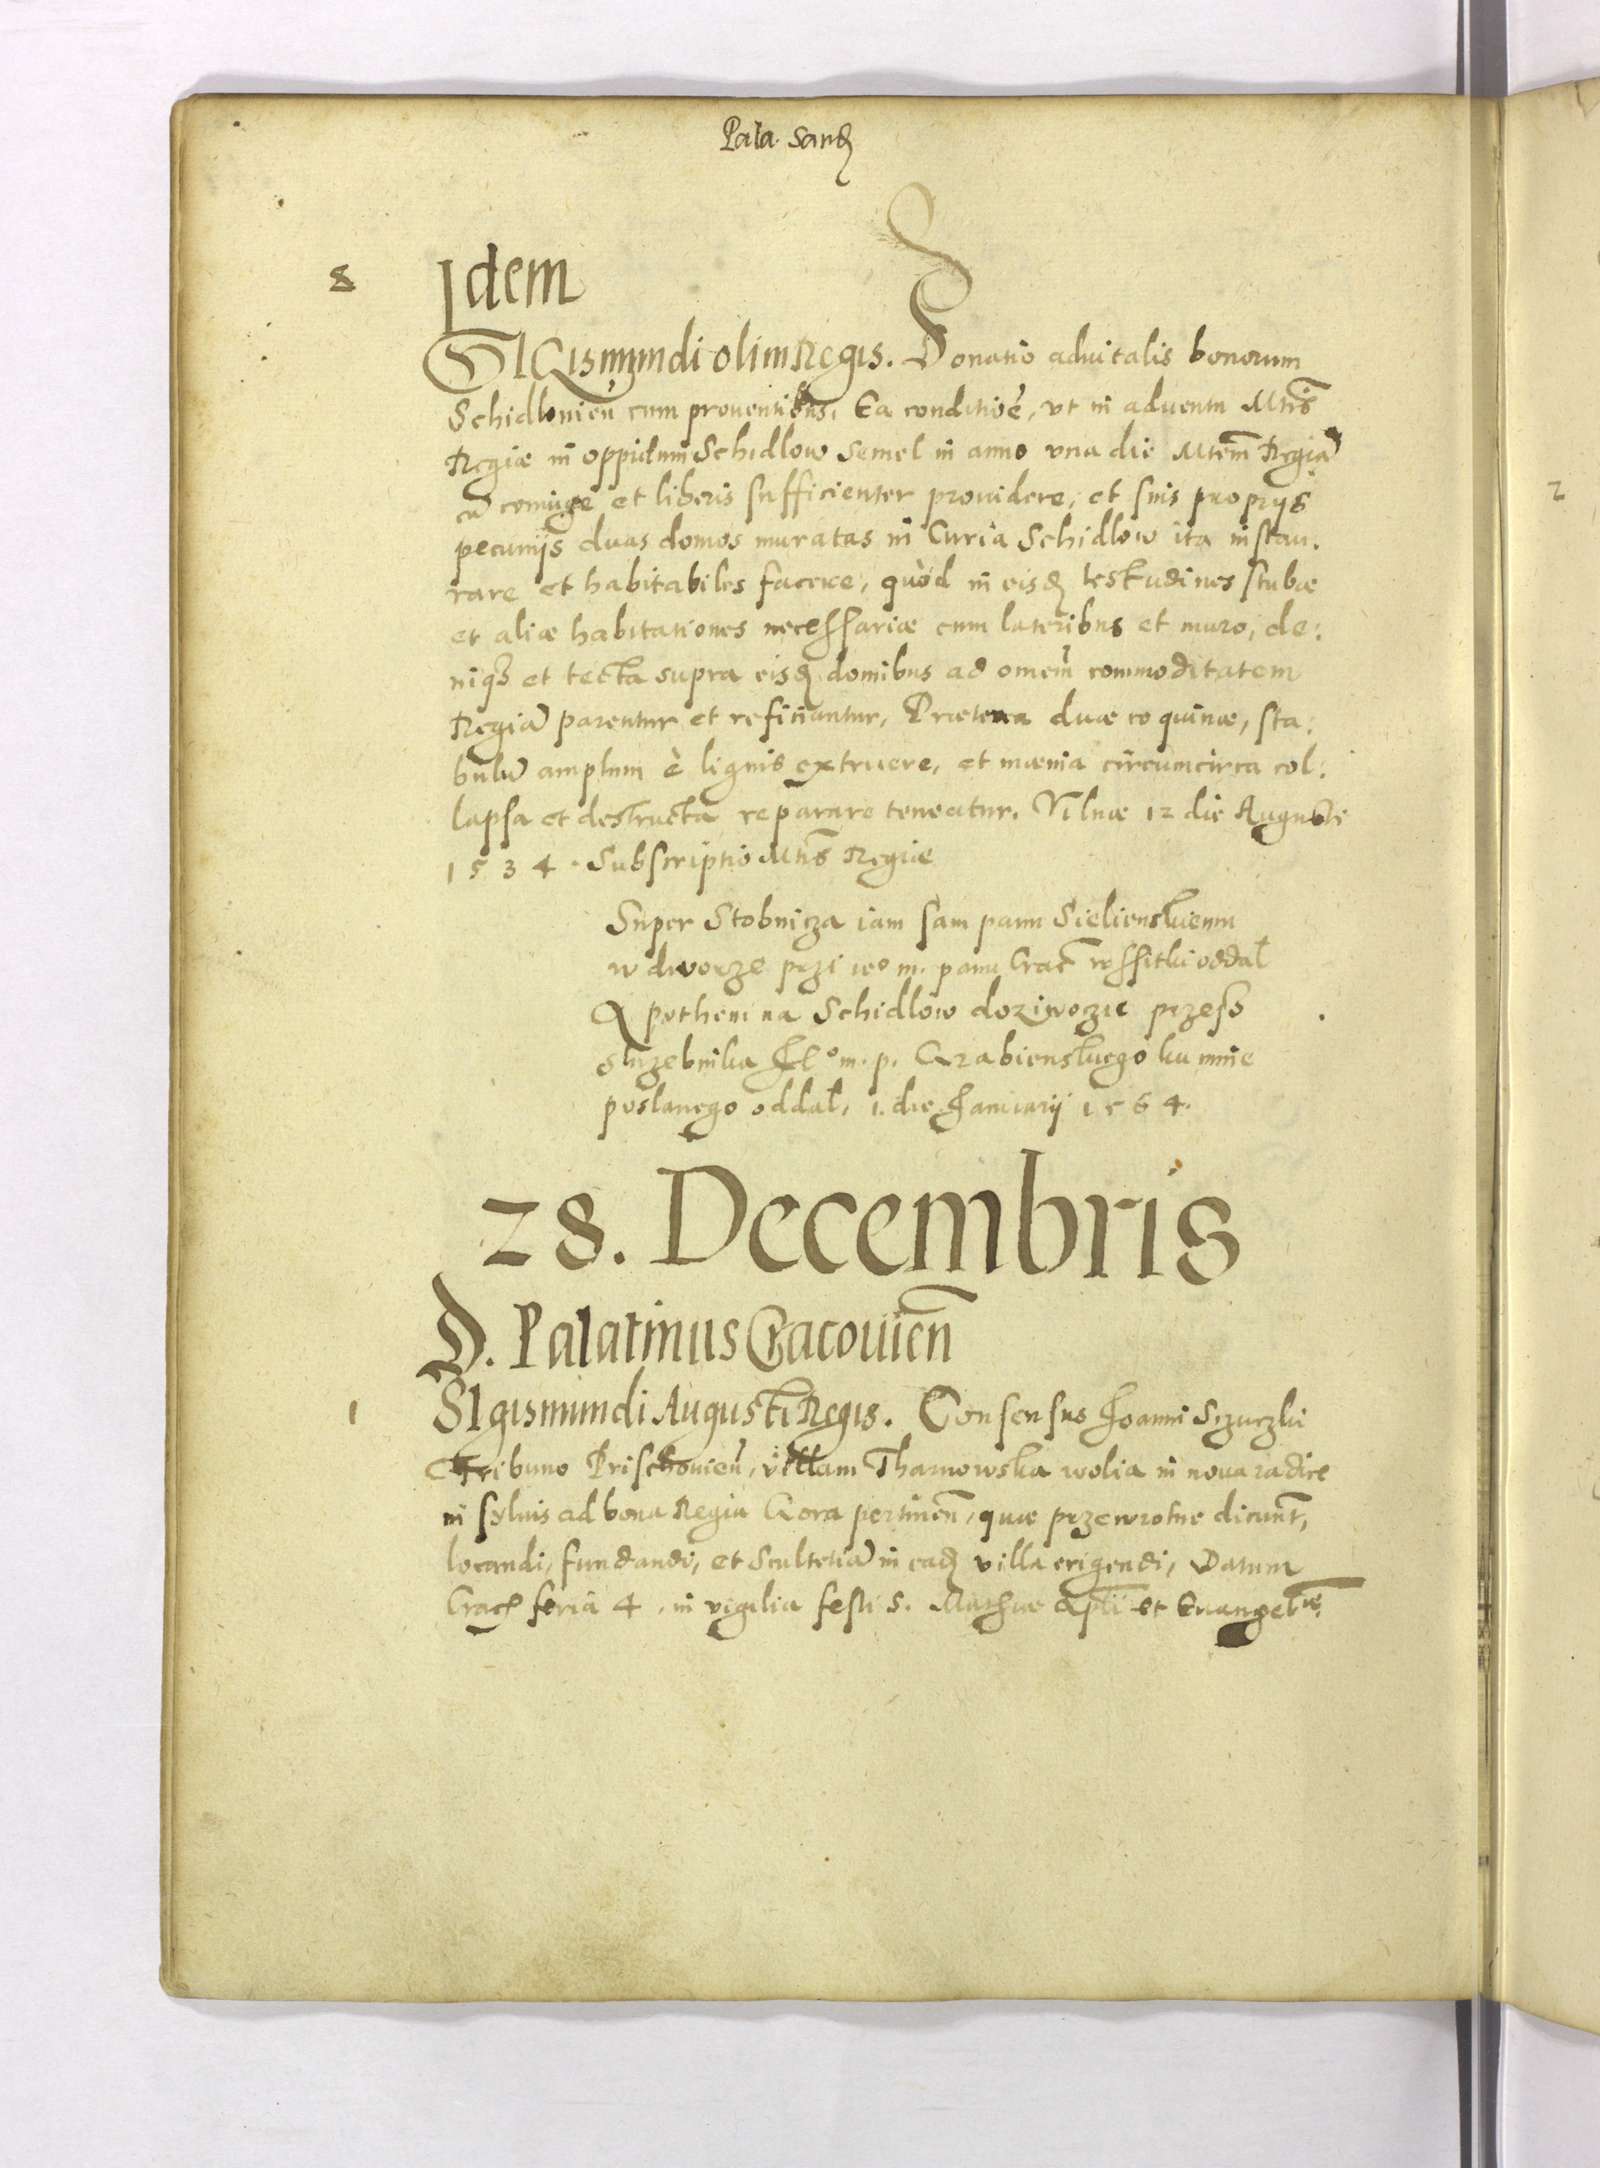 Pala. Sand
8
Idem
SIGismundi olim Regis. Donatio aduitalis bonorum
Schidlouień cum prouentibus, Ea conditioē, vt in aduentu Mtis
Regiæ in oppidum Schidlow semel in anno vna die Mtem Regiā
cū coniuge et liberis sufficienter prouidere, et suis proprijs
pecunijs duas domos muratas in Curia Schidlow ita instau.
rare et habitabiles facere, quòd in eisd testudines stubæ
et aliæ habitationes necessariæ cum lateribus et muro, de:
niqз et tecta supra eisd domibus ad omem commoditatem
Regiā parentur et reficiantur, Præterea duæ coquinæ, sta:
bulū amplum è lignis extruere, et mænia circumcirca col:
lapsa et destructa reparare teneatur. Vilnæ 12 die Augusti
1534. Subscriptio Mtis Regiæ
Super Stobnicza iam sam panu Sielienskiemu
w dworze przi ieo m. panu Crac wssitki oddal
A pothem na Schidlow doziwoczie przess
sluzebnika Je° m. p. Grabienskiego ku mnie
poslanego oddal, 1. die Januarij 1564.
28. Decembris
D. Palatinus Cracouien
1
SIgismundi Augusti Regis. Consensus Joanni Sczuczki
Tribuno Prischouień, villam Tharnowska wolia in noua radice
in syluis ad bona Regia Gora pertinen, quæ przewrotne dicunt,
locandi, fundandi, et Scultetiā in ead villa erigendi, Datum
Crac feria 4, in vigilia festi S. Mathæi Apli et Euangeliæ.
2